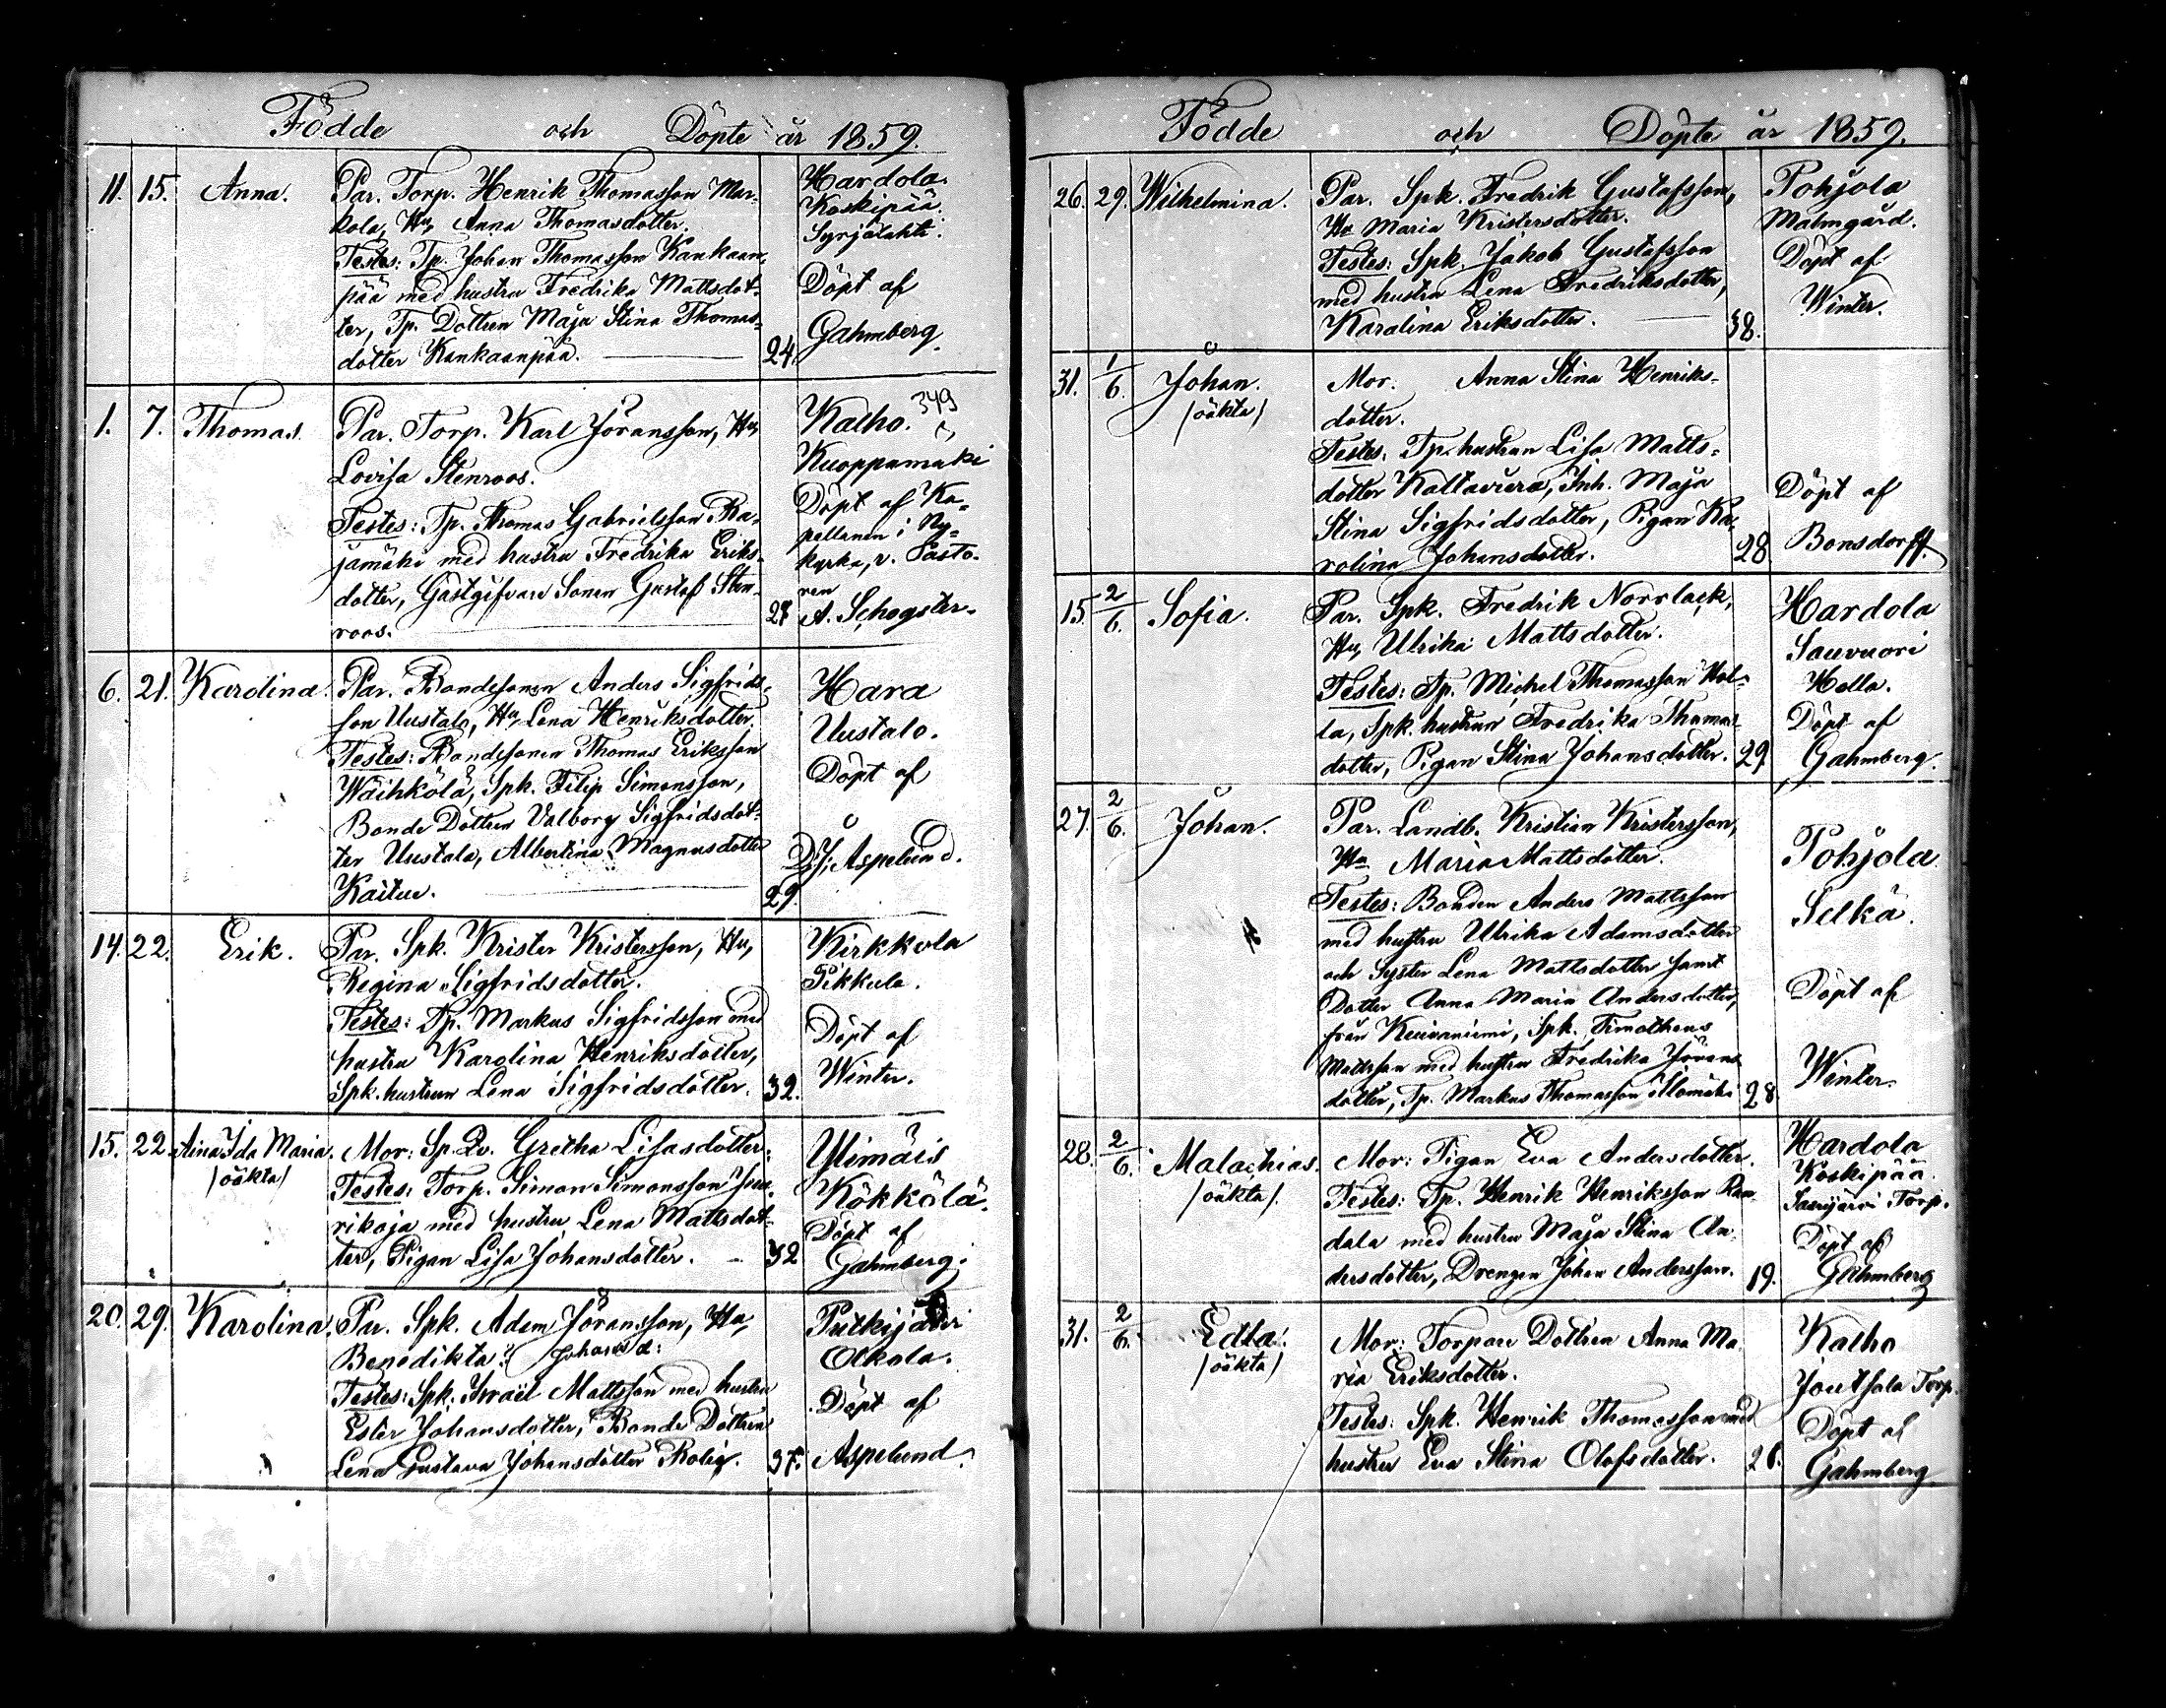 Födde och Döpte år 1859.
11. 15. Anna. Par. Torp. Henrik Thomasson Mar-
kola, Hu, Anna Thomasdotter.
Testes: Tp. Johan Thomasson Kankaan-
pää med hustru Fredrika Mattsdot-
ter, Tp. Dottren Maja Stina Thomas-
dotter Kankaanpää. 24.
Hardola.
Koskipää.
Syrjälahti.
Döpt af
Gahmberg.
1. 7. Thomas. Par. Torp. Karl Jöransson, Hu,
Lovisa Stenroos.
Testes: Tp. Thomas Gabrielsson Ra-
jamäki med hustru Fredrika Eriks-
dotter, Gästgifvare Sonen Gustaf Sten-
roos. 28
Kalho. 349
Kuoppamäki
Döpt af Ka-
pellanen i Ny-
kyrka, v. Pasto-
ren
A. Schogster.
6. 21. Karolina. Par. Bondesonen Anders Sigfrids-
son Uustalo, Hu, Lena Henriksdotter.
Testes: Bondesonen Thomas Eriksson
Wäihkölä, Spk. Filip Simonsson,
Bonde Dottren Valborg Sigfridsdot-
ter Uustalo, Albertina Magnusdotter
Kaitue. 29.
Hara
Uustalo.
Döpt af
D. J. Aspelund.
14. 22. Erik. Par. Spk. Krister Kristersson, Hu,
Regina Sigfridsdotter.
Testes: Tp. Markus Sigfridsson med
hustru Karolina Henriksdotter,
Spk. hustrun Lena Sigfridsdotter. 32.
Kirkkola
Pikkula.
Döpt af
Winter.
15. 22. Aina Ida Maria. Mor: Sp. Qv. Gretha Lisasdotter.
/oäkta/ Testes: Torp. Simon Simonsson
rikoja med hustru Lena Mattsdot-
ter, Pigan Lisa Johansdotter. 32
Ylimäis
Kökkölä.
Döpt af
Gahmberg.
20. 29. Karolina. Par. Spk. Adam Jöransson, Hu,
Benedikta Johansd:
Testes: Spk. Israël Mattsson med hustru
Ester Johansdotter, Bonde Dottren
Lena Gustava Johansdotter Rolig. 37.
Putkijärvi
Olkala.
Döpt af
Aspelund.
Födde och Döpte år 1859.
26. 29. Wilhelmina. Par. Spk. Fredrik Gustafsson,
Hu Maria Kristersdotter.
Testes: Spk. Jakob Gustafsson
med hustru Lena Fredriksdotter,
Karalina Eriksdotter. 38.
Pohjola
Malmgård.
Döpt af
Winter.
31. 1/6. Johan. Mor. Anna Stina Henriks-
/oäkta/ dotter.
Testes: Tp. hustrun Lisa Matts-
dotter Kaltaviera, Inh. Maja
Stina Sigfridsdotter, Pigan Ka-
rolina Johansdotter. 28.
Döpt af
Bonsdorff.
15. 2/6. Sofia. Par. Spk. Fredrik Norrlack,
Hu, Ulrika Mattsdotter.
Testes: Tp. Michel Thomasson Hol-
la, Spk. hustrun Fredrika Thomas-
dotter, Pigan Stina Johansdotter. 29.
Hardola
Sauvuori
Holla.
Döpt af
Gahmberg.
27. 2/6. Johan. Par. Landb. Kristian Kristersson,
Hu Maria Mattsdotter.
Testes: Bonden Anders Mattsson
med hustru Ulrika Adamsdotter
och Syster Lena Mattsdotter samt
Dotter Anna Maria Andersdotter,
från Kuivaniemi, Spk. Timotheus
Mattsson med hustru Fredrika Jörans-
dotter, Tp. Markus Thomasson Ilomäki 28.
Pohjola
Selkä.
Döpt af
Winter.
28. 2/6. Malachias. Mor: Pigan Eva Andersdotter.
/oäkta/ Testes: Tp. Henrik Henriksson Ran-
dala med hustru Maja Stina An-
dersdotter, Drengen Johan Andersson. 19.
Hardola
Koskipää.
Saarijärvi Torp.
Döpt af
Gahmberg
31. 2/6. Edla. Mor: Torpare Dottren Anna Ma-
/oäkta/ ria Eriksdotter.
Testes: Spk. Henrik Thomasson med
hustru Eva Stina Olofsdotter. 26.
Kalho
Joutsala Torp.
Döpt af
Gahmberg